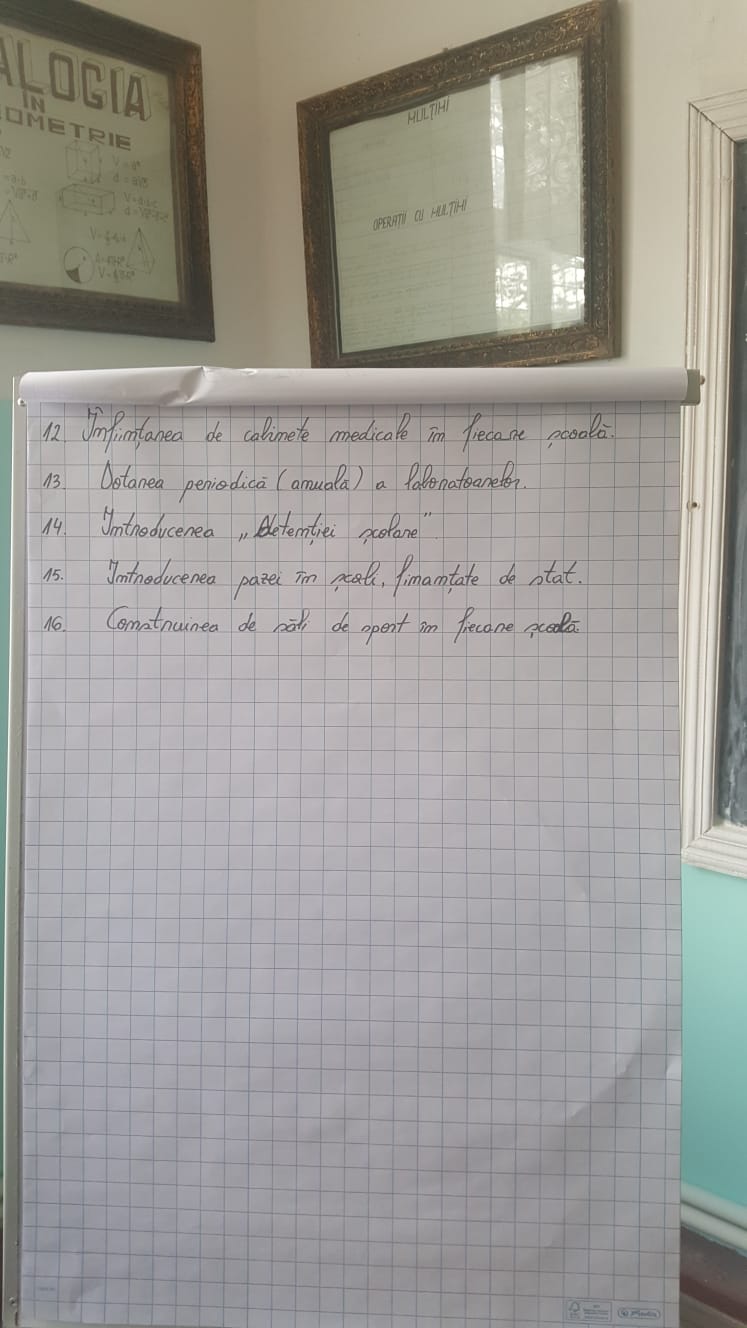 ALOGIA
ÎN
OMETRIE
V = a³
d = a√3
V=a·b·c
MULȚIMI
OPERAȚII CU MULȚIMI
12. Înființarea de cabinete medicale în fiecare școală.
13. Dotarea periodică (anuală) a laboratoarelor.
14. Introducerea „detenției școlare”
15. Introducerea pazei în școli, finanțate de stat.
16. Construirea de săli de sport în fiecare școală